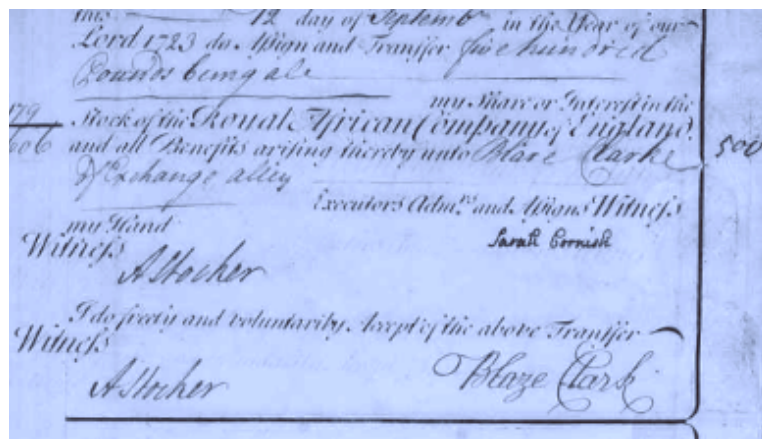 this 12 day of Septembr in the Year of our
Lord 1723 do Assign and Transfer five hundred
Pounds being ale
my Share or Interest in the
179
606
Stock of the Royal African Company of England,
and all Benefits arising thereby unto Blaze Clarke
500
of Exchange alley
Executors Admrs and Assigns Witness
my Hand
Witness
Sarah Cornish
AStocher
I do freely and voluntarily Accept of the above Transfer
Witness
AStocher
Blaze Clark